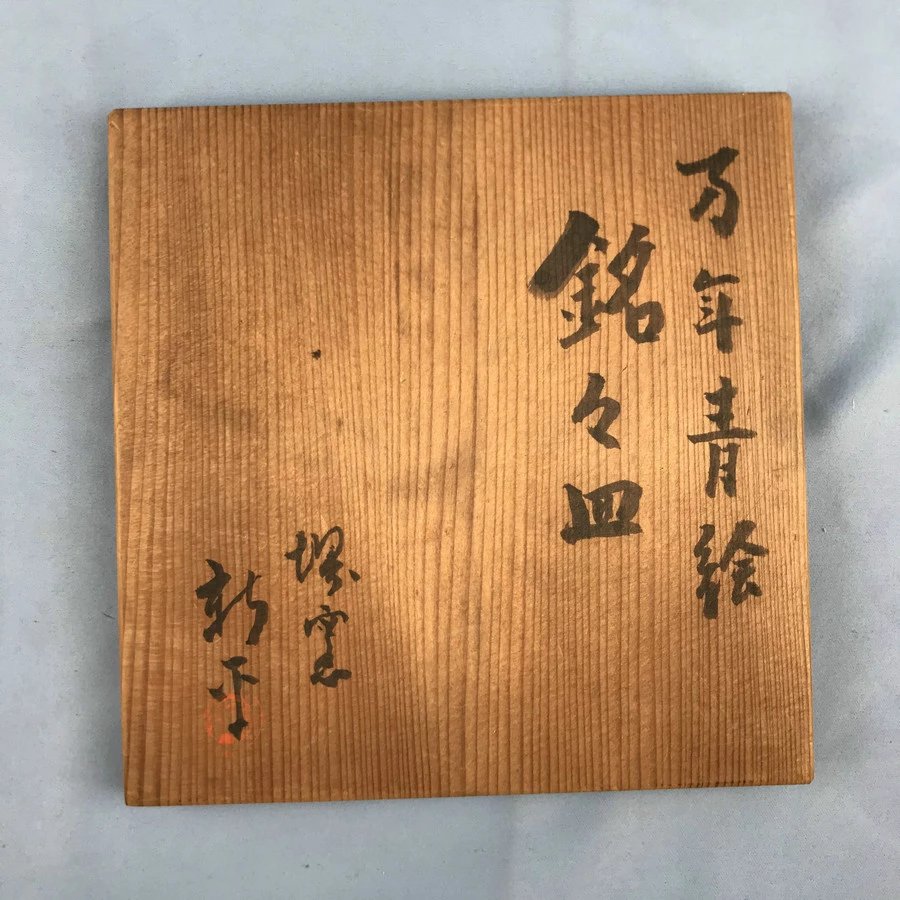 万年青絵
銘々皿
窯
新平